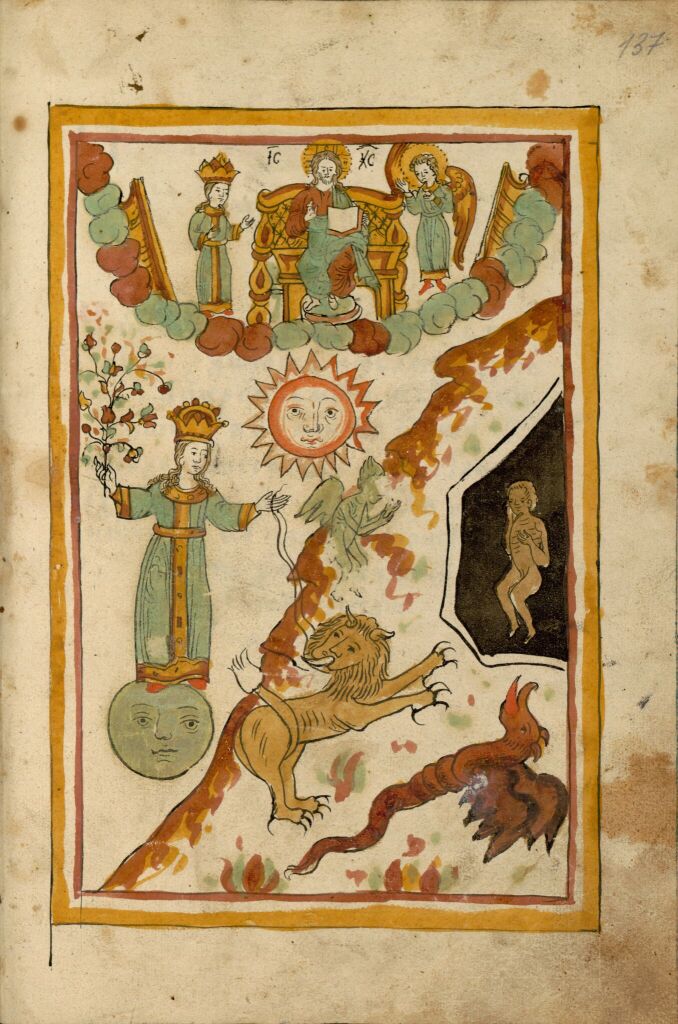 137
І҃С Х҃С